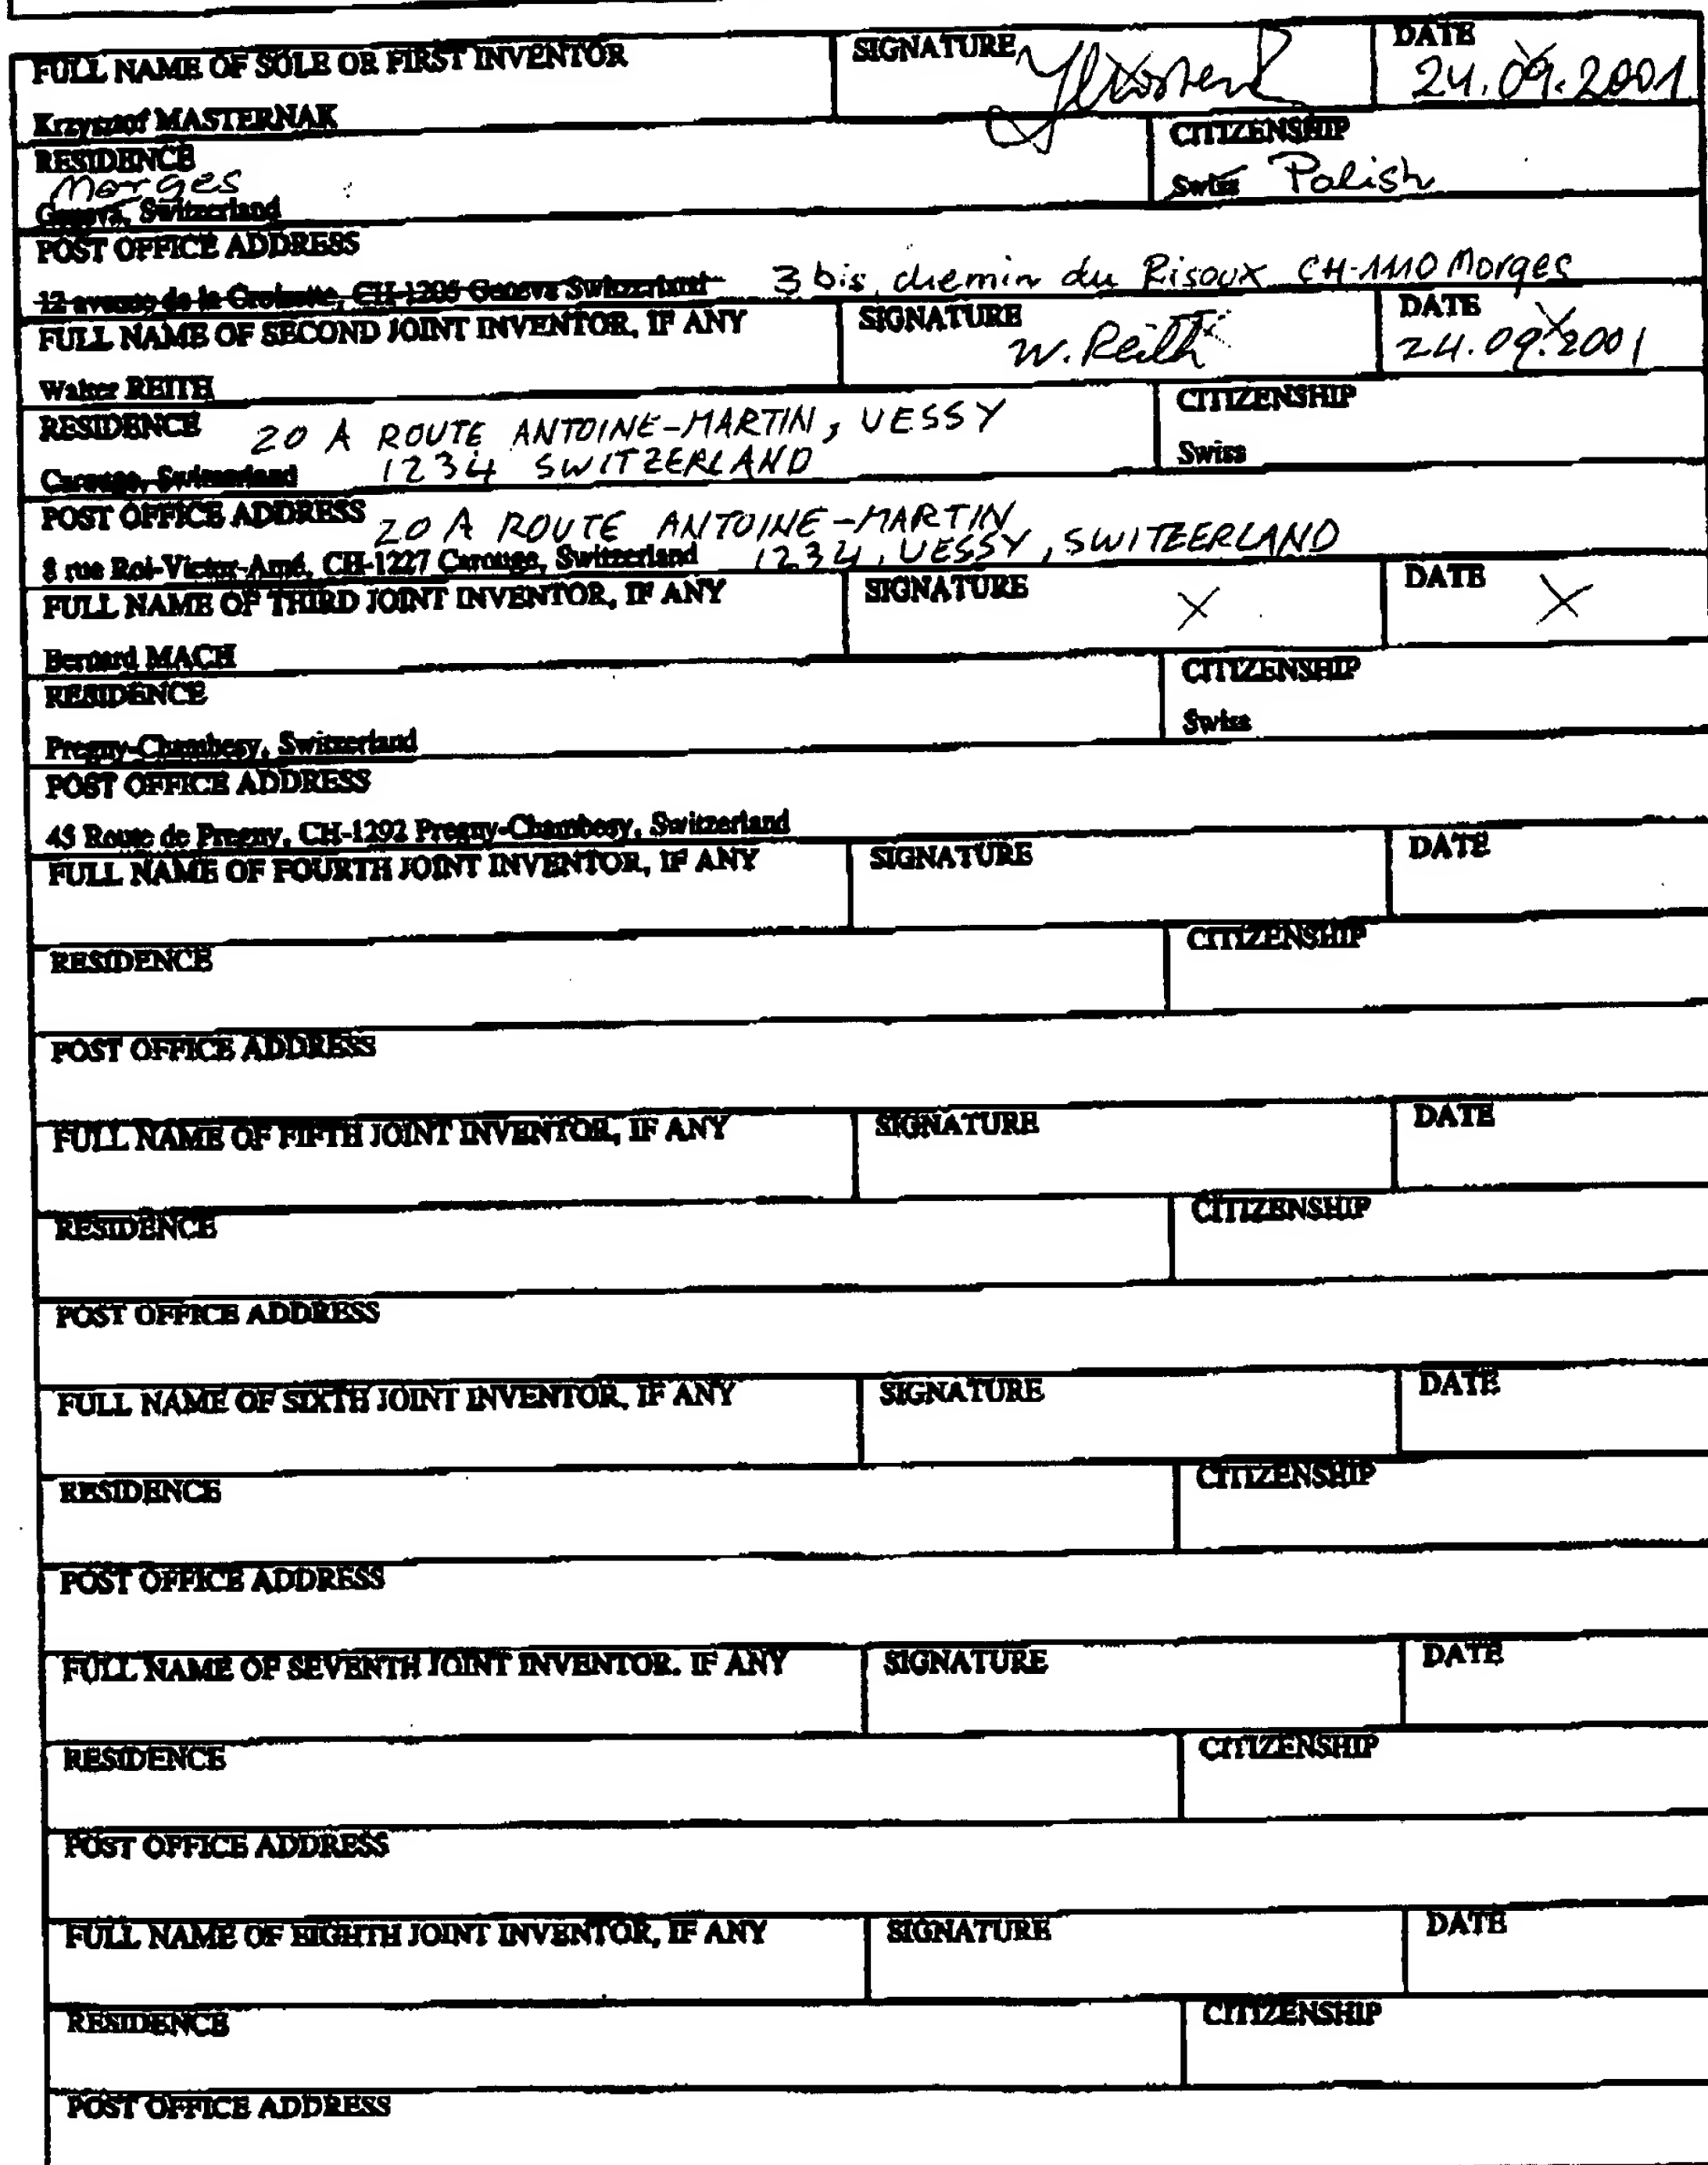 FULL NAME OF SOLE OR FIRST INVENTOR
SIGNATURE
DATE
24.09.2001
Krzysztof MASTERNAK
RESIDENCE
Morges
Geneva, Switzerland
CITIZENSHIP
Swiss Polish
POST OFFICE ADDRESS
12 avenue de la Croisette, CH-1205 Geneva Switzerland 3 bis, chemin du Risoux CH-1110 Morges
FULL NAME OF SECOND JOINT INVENTOR, IF ANY
SIGNATURE
W. Reith
DATE
24.09.2001
Walter REITH
RESIDENCE 20 A ROUTE ANTOINE-MARTIN, VESSY
Carouge, Switzerland 1234 SWITZERLAND
CITIZENSHIP
Swiss
POST OFFICE ADDRESS 20 A ROUTE ANTOINE-MARTIN
8 rue Roi-Victor-Amé, CH-1227 Carouge, Switzerland 1234, VESSY, SWITZERLAND
FULL NAME OF THIRD JOINT INVENTOR, IF ANY
SIGNATURE X
DATE X
Bernard MACH
RESIDENCE
Pregny-Chambesy, Switzerland
CITIZENSHIP
Swiss
POST OFFICE ADDRESS
45 Route de Pregny, CH-1292 Pregny-Chambesy, Switzerland
FULL NAME OF FOURTH JOINT INVENTOR, IF ANY
SIGNATURE
DATE
RESIDENCE
CITIZENSHIP
POST OFFICE ADDRESS
FULL NAME OF FIFTH JOINT INVENTOR, IF ANY
SIGNATURE
DATE
RESIDENCE
CITIZENSHIP
POST OFFICE ADDRESS
FULL NAME OF SIXTH JOINT INVENTOR, IF ANY
SIGNATURE
DATE
RESIDENCE
CITIZENSHIP
POST OFFICE ADDRESS
FULL NAME OF SEVENTH JOINT INVENTOR. IF ANY
SIGNATURE
DATE
RESIDENCE
CITIZENSHIP
POST OFFICE ADDRESS
FULL NAME OF EIGHTH JOINT INVENTOR, IF ANY
SIGNATURE
DATE
RESIDENCE
CITIZENSHIP
POST OFFICE ADDRESS